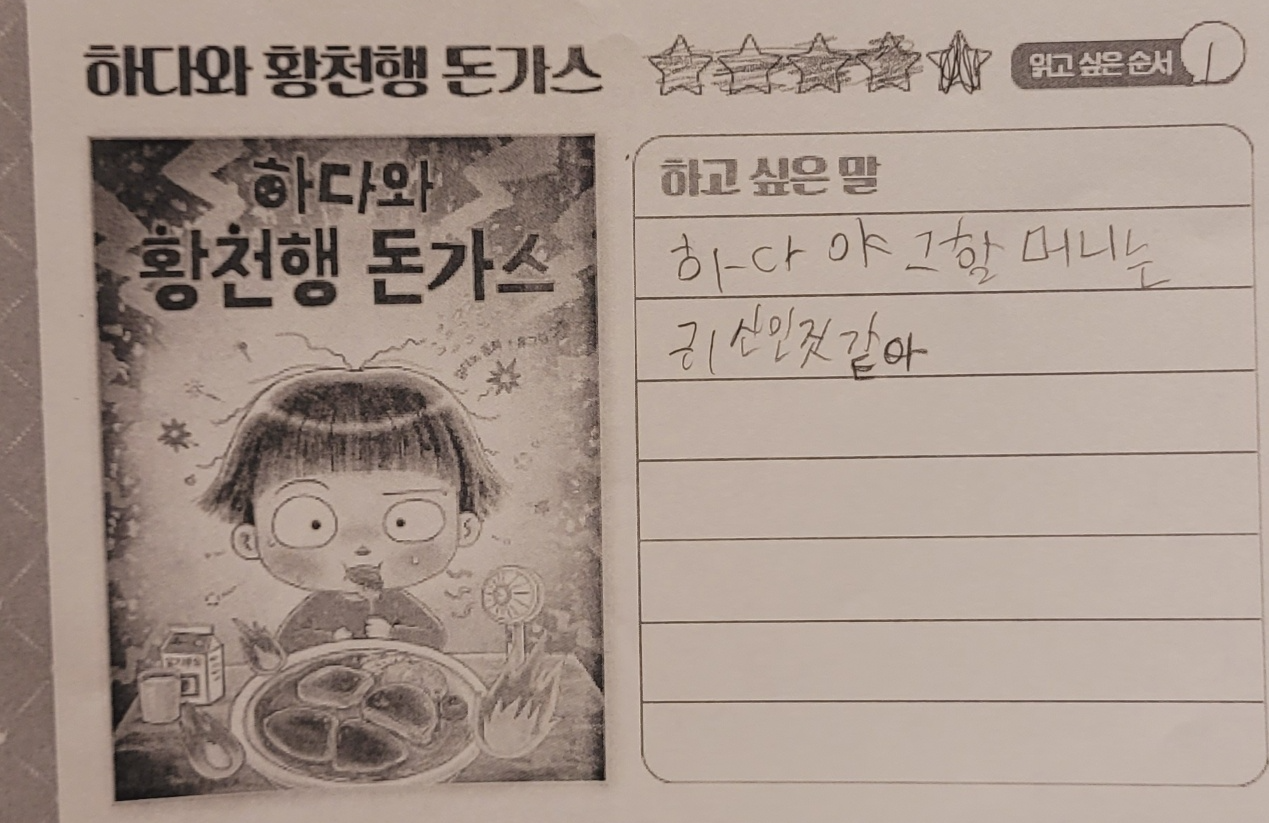 하다와 황천행 돈가스
읽고 싶은 순서 1
하다와
황천행 돈가스
하고 싶은 말
하다 야 그할 머니는
귀신인짓 같아